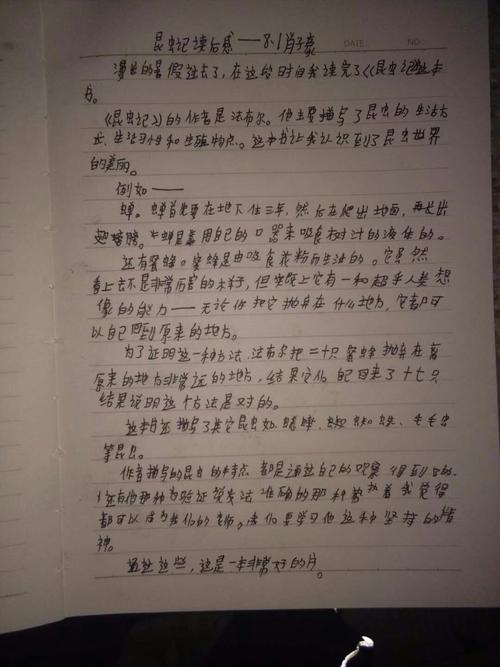 昆虫记读后感——8.1肖子豪
DATE: NO:
漫长的暑假过去了,在这段时间我读完了《昆虫记》这本
书。
《昆虫记》的作者是法布尔。他主要描写了昆虫的生活方
式、生活习性和生殖特点。这本书让我认识到了昆虫世界
的美丽。
例如——
蝉。蝉首先要在地下住三年,然后在爬出地面,再长出
翅膀。蝉是靠用自己的口器来吸食树汁的液体的。
还有蜜蜂。蜜蜂是由吸食花粉而生活的。它虽然
看上去不是非常厉害的样子,但实际上它有一种超乎人类想
像的能力——无论你把它抛弃在什么地方,它都可
以自己回到原来的地方。
为了证明这一种方法,法布尔把二十只蜜蜂抛弃在离
原来的地方非常远的地方,结果它们自己回来了十七只
结果说明这个方法是对的。
这本书还描写了其它昆虫如、蟋蟀、蜘蛛、毛毛虫
等昆虫。
作者描写的昆虫的特点都是通过自己的观察得到的.
还有他那种为验证准确的那种执着我觉得
都可以成为我们的老师。我们要学习他这种坚持的精
神。
通过这些,这是一本非常好的书。